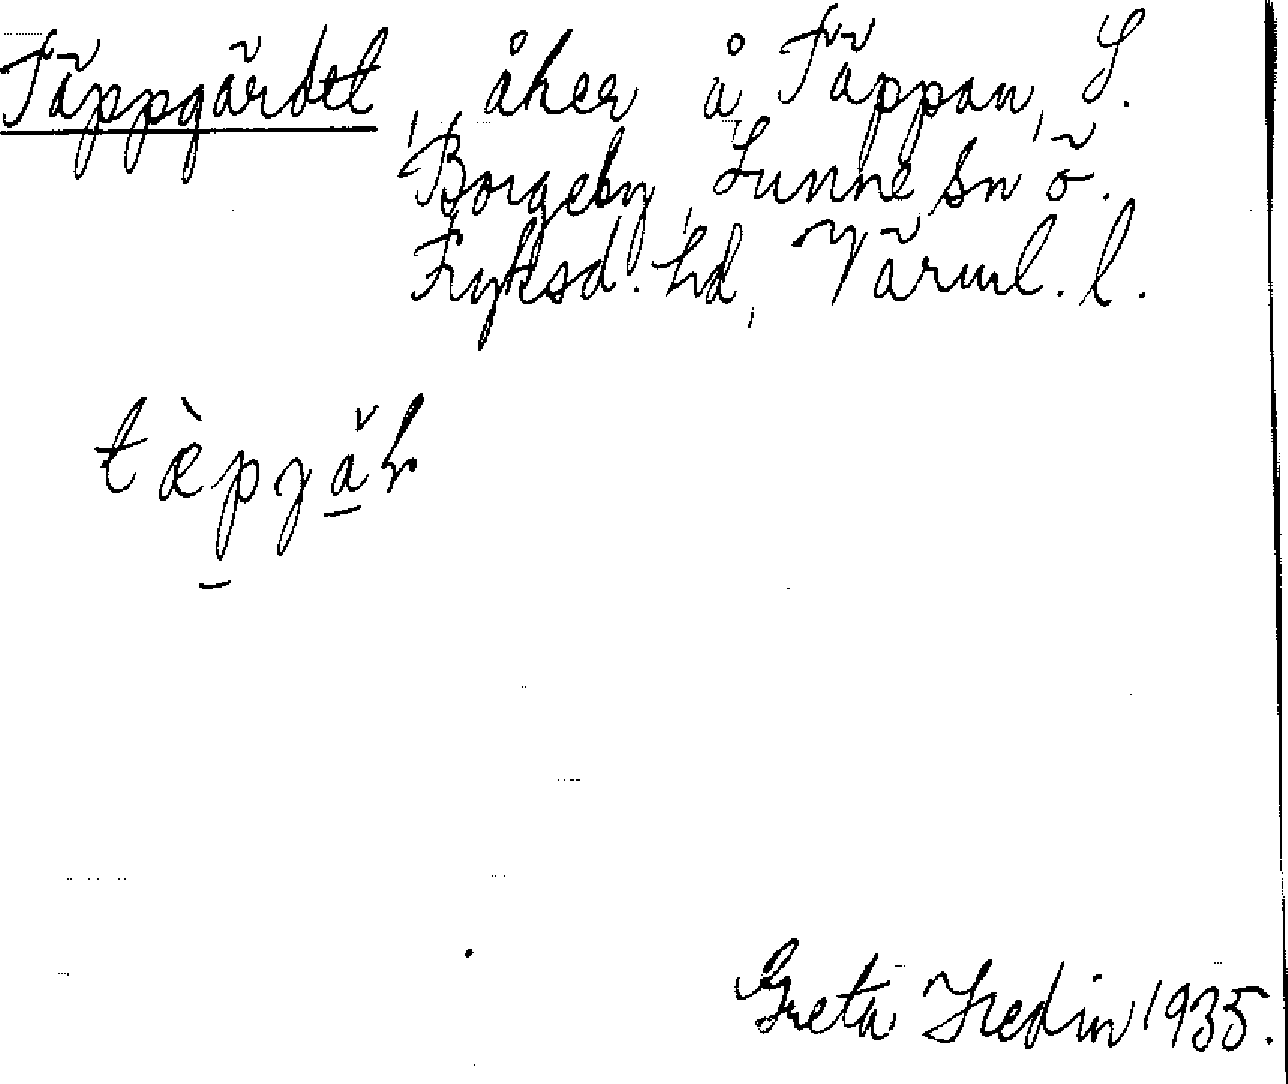 Täppgärdet, åker å Täppan, S.
Borgeby, Sunne sn ö.
Fryksd. hd, Värml. l.
tæ̀pgăṛ
Greta Hedin 1935.